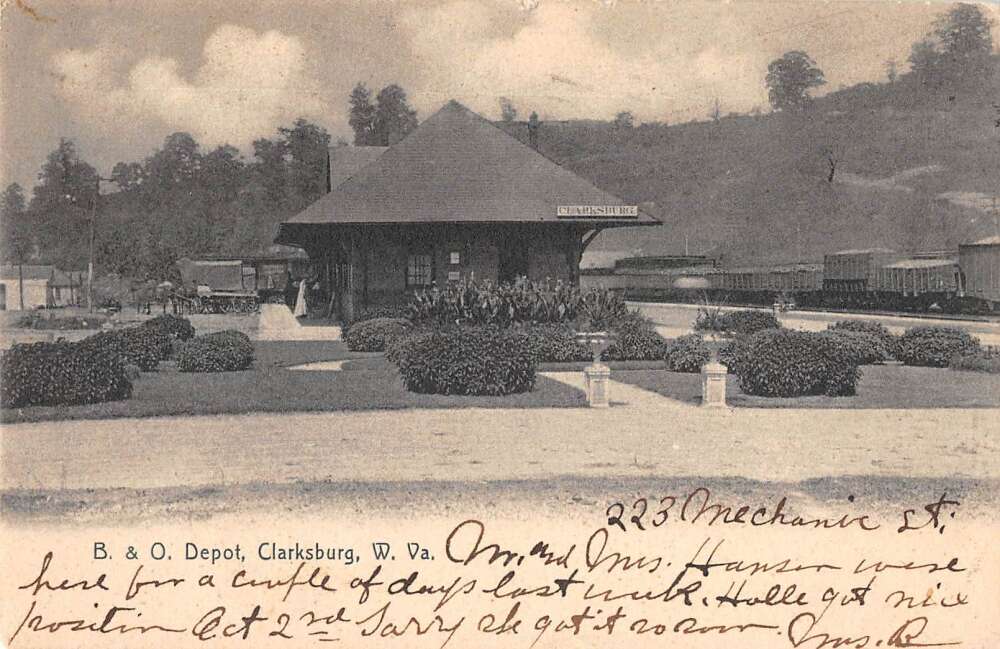 CLARKSBURG.
223 Mechanic St.
B. & O. Depot, Clarksburg, W. Va. Mr. and Mrs. Hanson were
here for a couple of days last week. Halle got nice
position Oct 2nd Sorry she got it so soon. Mrs. B